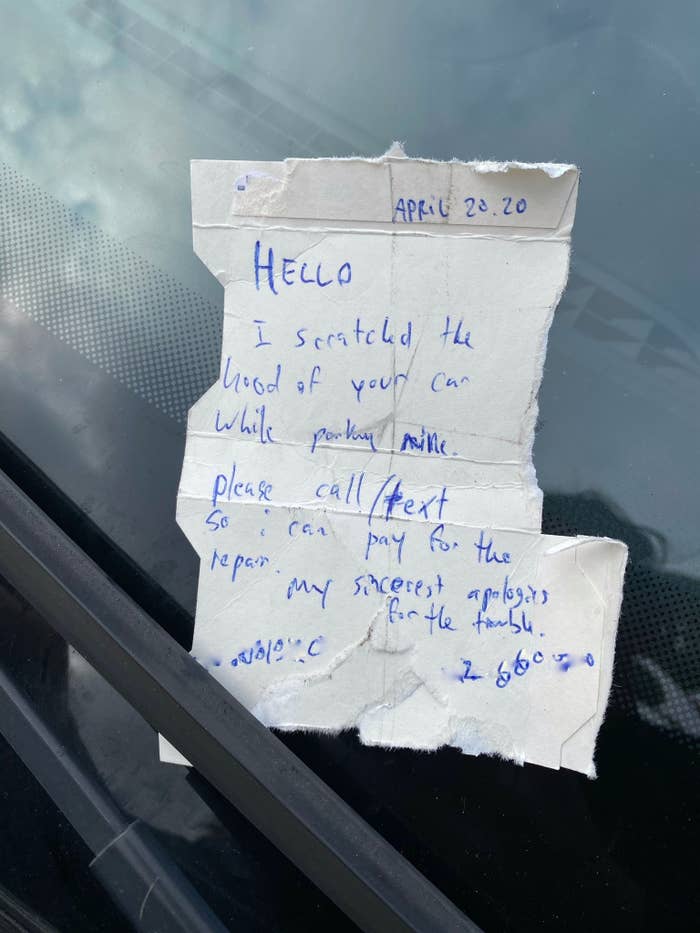 APRIL 20.20
HELLO
I scratched the
hood of your car
while parking mine.
please call/text
so i can pay for the
repair. my sincerest apologies
for the trouble.